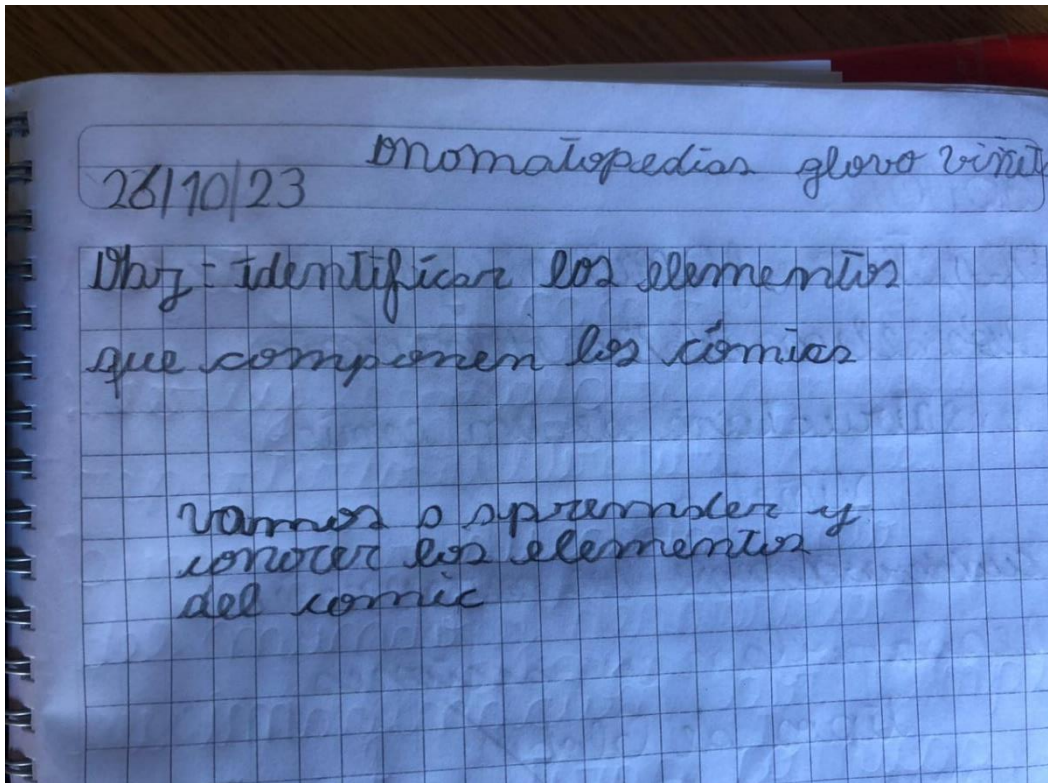 onomatopedias glovo viñet
26/10/23
Obj= identificar los elementos
que componen los cómics
vamos a aprender y
conocer los elementos
del comic